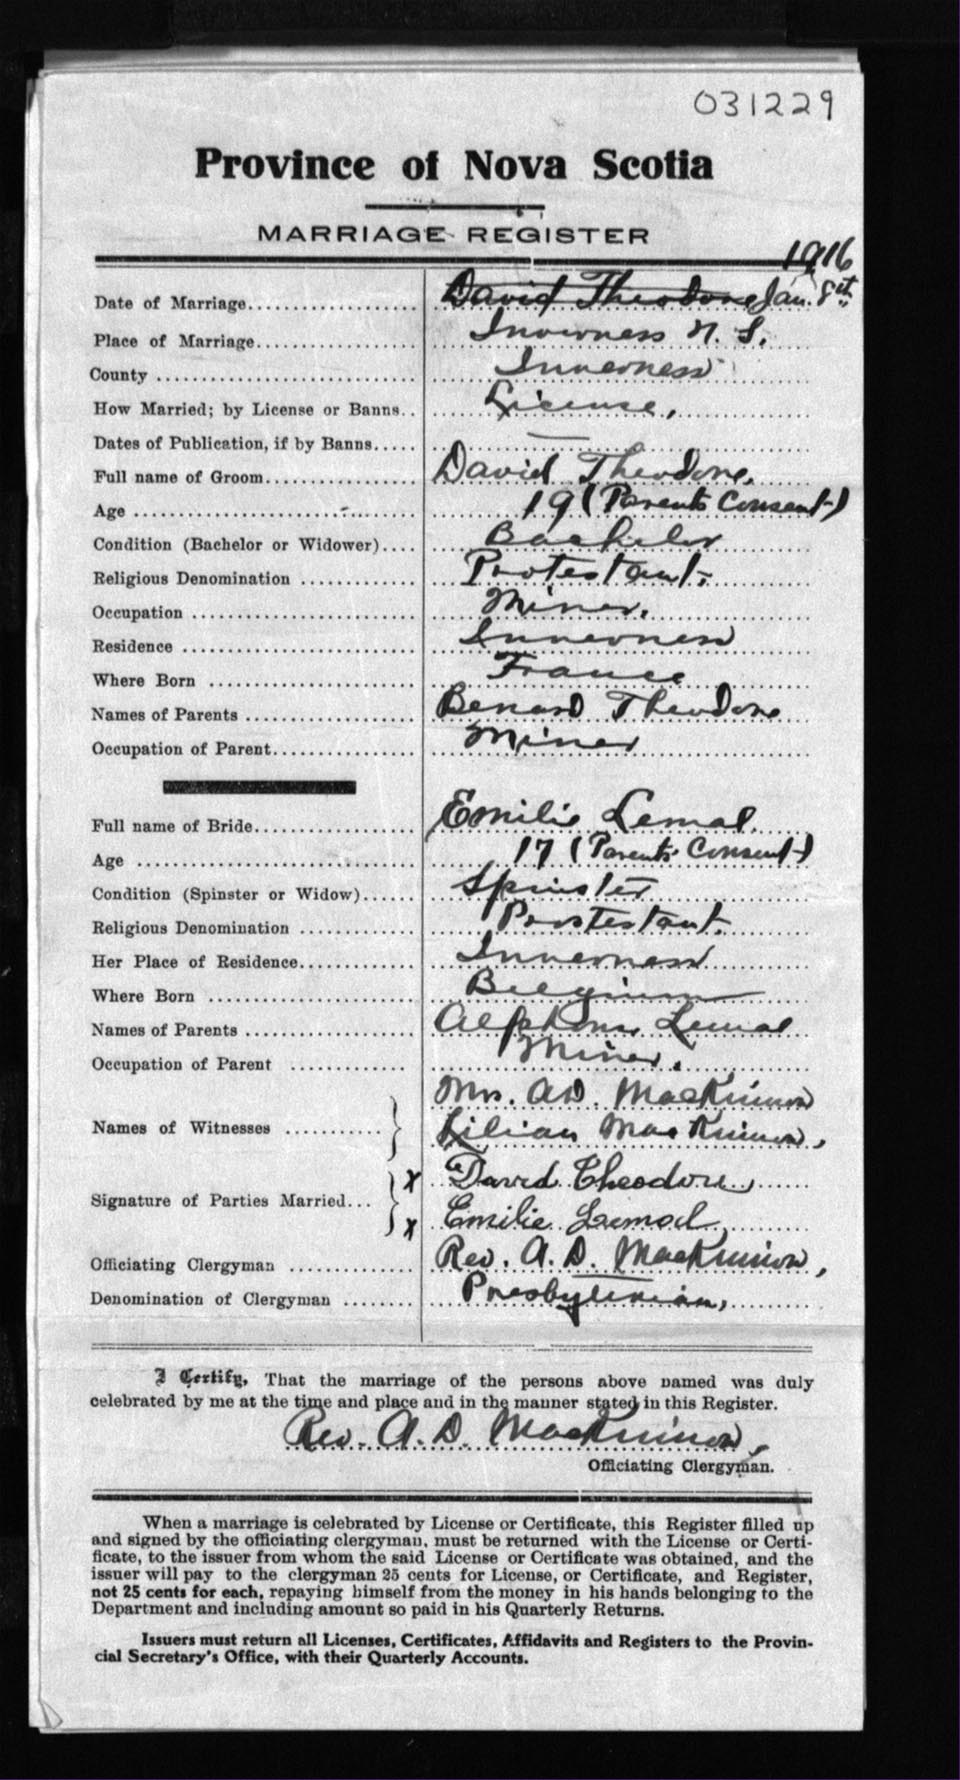 031229
Province of Nova Scotia
MARRIAGE REGISTER
1916
Date of Marriage David Theodore Jan. 8th
Place of Marriage Inverness N. S.
County Inverness
How Married; by License or Banns License,
Dates of Publication, if by Banns —
Full name of Groom David Theodore.
Age 19 (Parents Consent)
Condition (Bachelor or Widower) Bachelor
Religious Denomination Protestant.
Occupation Miner.
Residence Inverness
Where Born France
Names of Parents Benard Theodore
Occupation of Parent Miner
Full name of Bride Emilie Lemal.
Age 17 (Parents' Consent)
Condition (Spinster or Widow) Spinster
Religious Denomination Prostestant.
Her Place of Residence Inverness
Where Born Belgium
Names of Parents Alphons Lemal
Occupation of Parent Miner.
Mrs. A.D. MacKinnon
Names of Witnesses
Lilian MacKinnon,
x David Theodore
Signature of Parties Married
x Emilie Lemal
Officiating Clergyman Rev. A. D. MacKinnon,
Denomination of Clergyman Presbyterian,
I Certify, That the marriage of the persons above named was duly
celebrated by me at the time and place and in the manner stated in this Register.
Rev. A. D. MacKinnon,
Officiating Clergyman.
When a marriage is celebrated by License or Certificate, this Register filled up
and signed by the officiating clergyman, must be returned with the License or Certi-
ficate, to the issuer from whom the said License or Certificate was obtained, and the
issuer will pay to the clergyman 25 cents for License, or Certificate, and Register,
not 25 cents for each, repaying himself from the money in his hands belonging to the
Department and including amount so paid in his Quarterly Returns.
Issuers must return all Licenses, Certificates, Affidavits and Registers to the Provin-
cial Secretary's Office, with their Quarterly Accounts.